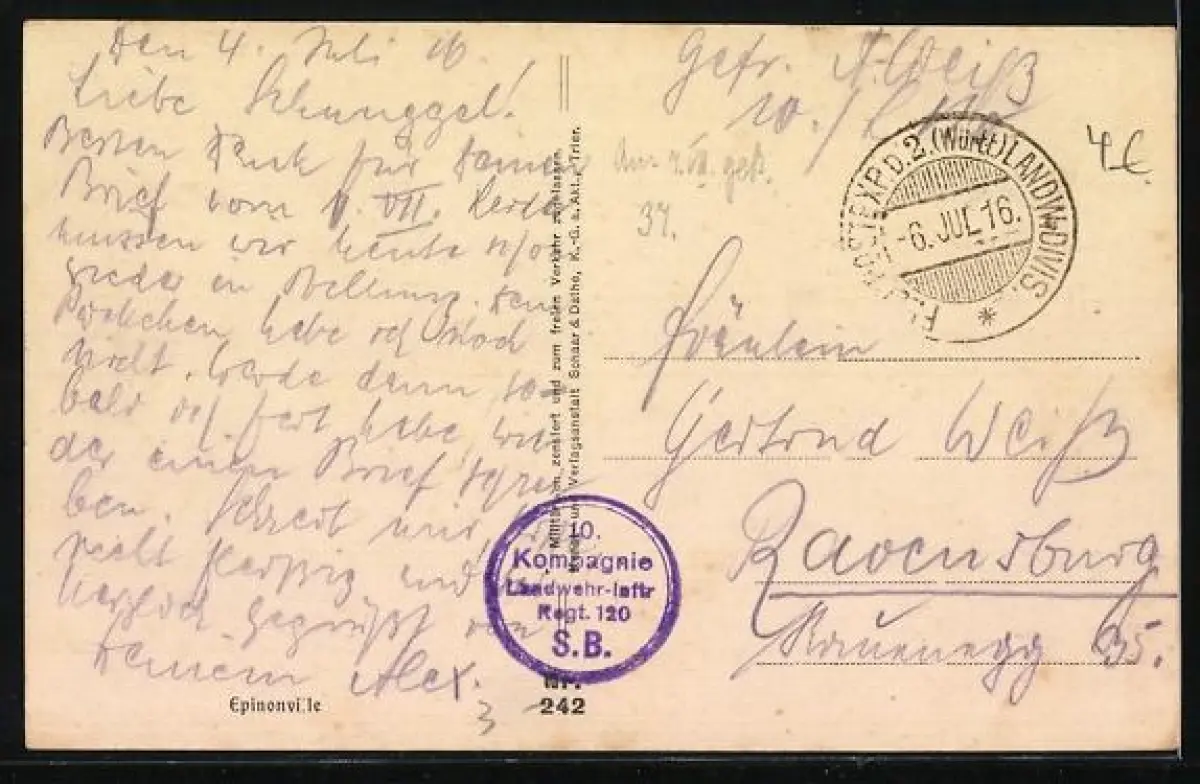 Den 4. Juli 16.
Liebe Schunggel!
Besten Dank für Deinen
Brief vom 1. VII. Leider
müssen wir heute
wieder in Stellung. Dein
Päckchen habe ich noch
nicht. Werde dann so-
bald ich Zeit habe, wie
der einen Brief schrei
ben. Schreib mir
recht fleißig und sei
herzlich gegrüßt von
Deinem Alex.
3
Epinonville
Militäramtl. zensiert und zum freien Verkehr zugelassen.
Kunst- und Verlagsanstalt Schaar & Dathe, K.-G. a. Akt., Trier.
10.
Kompagnie
Landwehr-Inftr
Regt. 120
S.B.
Nr.
242
Gefr. A. Weiß
10./L.
4 €.
Ant. 7. VII. gest.
37.
FELDPOSTEXP. D. 2. (Württ) LANDW.-DIVIS. *
-6. JUL 16.
Fräulein
Gertrud Weiß
Ravensburg
Rauenegg 35.